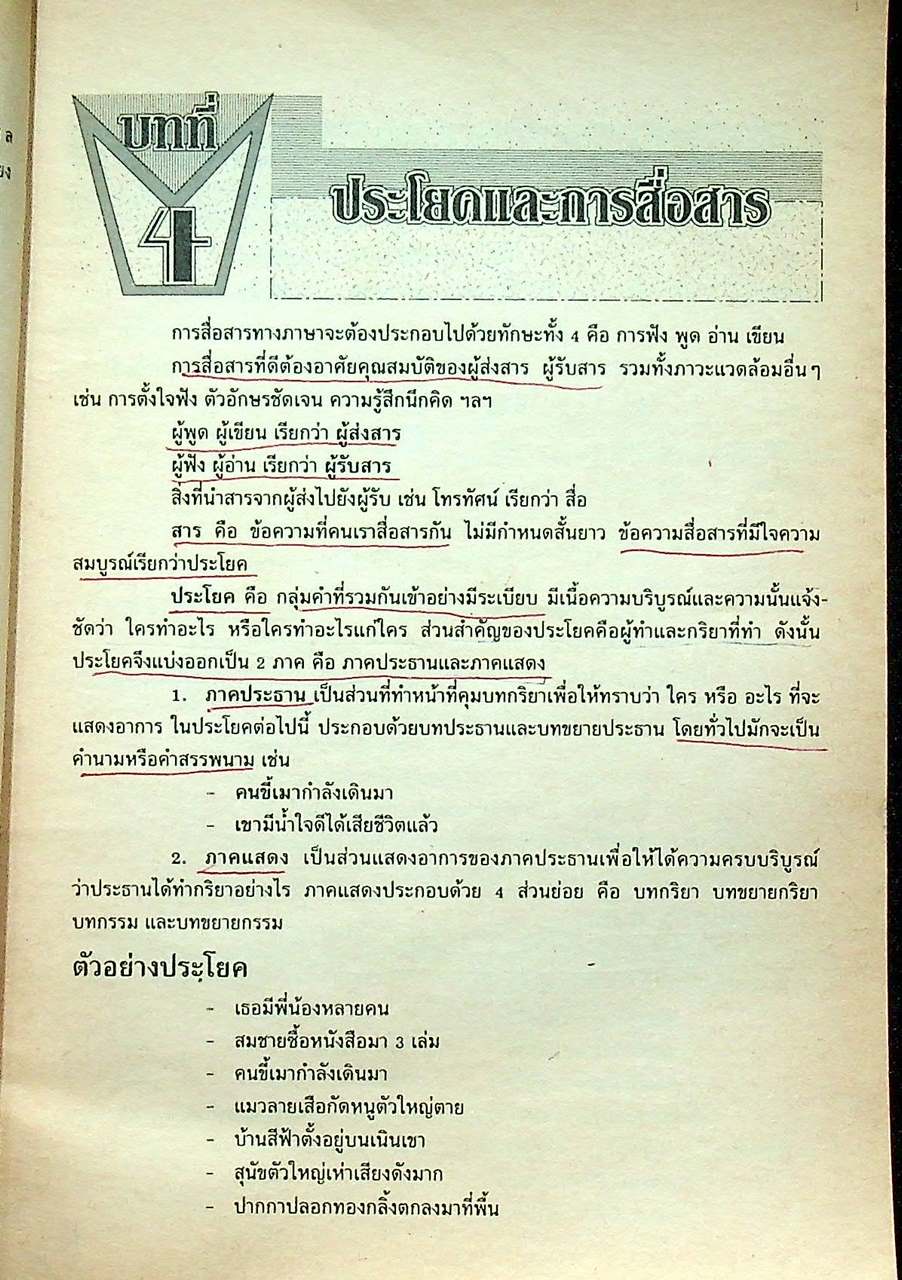 บทที่
4
ประโยคและการสื่อสาร
การสื่อสารทางภาษาจะต้องประกอบไปด้วยทักษะทั้ง 4 คือ การฟัง พูด อ่าน เขียน
การสื่อสารที่ดีต้องอาศัยคุณสมบัติของผู้ส่งสาร ผู้รับสาร รวมทั้งภาวะแวดล้อมอื่นๆ
เช่น การตั้งใจฟัง ตัวอักษรชัดเจน ความรู้สึกนึกคิด ฯลฯ
ผู้พูด ผู้เขียน เรียกว่า ผู้ส่งสาร
ผู้ฟัง ผู้อ่าน เรียกว่า ผู้รับสาร
สิ่งที่นำสารจากผู้ส่งไปยังผู้รับ เช่น โทรทัศน์ เรียกว่า สื่อ
สาร คือ ข้อความที่คนเราสื่อสารกัน ไม่มีกำหนดสั้นยาว ข้อความสื่อสารที่มีใจความ
สมบูรณ์เรียกว่าประโยค
ประโยค คือ กลุ่มคำที่รวมกันเข้าอย่างมีระเบียบ มีเนื้อความบริบูรณ์และความนั้นแจ้ง-
ชัดว่า ใครทำอะไร หรือใครทำอะไรแก่ใคร ส่วนสำคัญของประโยคคือผู้ทำและกริยาที่ทำ ดังนั้น
ประโยคจึงแบ่งออกเป็น 2 ภาค คือ ภาคประธานและภาคแสดง
1. ภาคประธาน เป็นส่วนที่ทำหน้าที่คุมบทกริยาเพื่อให้ทราบว่า ใคร หรือ อะไร ที่จะ
แสดงอาการ ในประโยคต่อไปนี้ ประกอบด้วยบทประธานและบทขยายประธาน โดยทั่วไปมักจะเป็น
คำนามหรือคำสรรพนาม เช่น
- คนขี้เมากำลังเดินมา
- เขามีน้ำใจดีได้เสียชีวิตแล้ว
2. ภาคแสดง เป็นส่วนแสดงอาการของภาคประธานเพื่อให้ได้ความครบบริบูรณ์
ว่าประธานได้ทำกริยาอย่างไร ภาคแสดงประกอบด้วย 4 ส่วนย่อย คือ บทกริยา บทขยายกริยา
บทกรรม และบทขยายกรรม
ตัวอย่างประโยค
- เธอมีพี่น้องหลายคน
- สมชายซื้อหนังสือมา 3 เล่ม
- คนขี้เมากำลังเดินมา
- แมวลายเสือกัดหนูตัวใหญ่ตาย
- บ้านสีฟ้าตั้งอยู่บนเนินเขา
- สุนัขตัวใหญ่เห่าเสียงดังมาก
- ปากกาปลอกทองกลิ้งตกลงมาที่พื้น